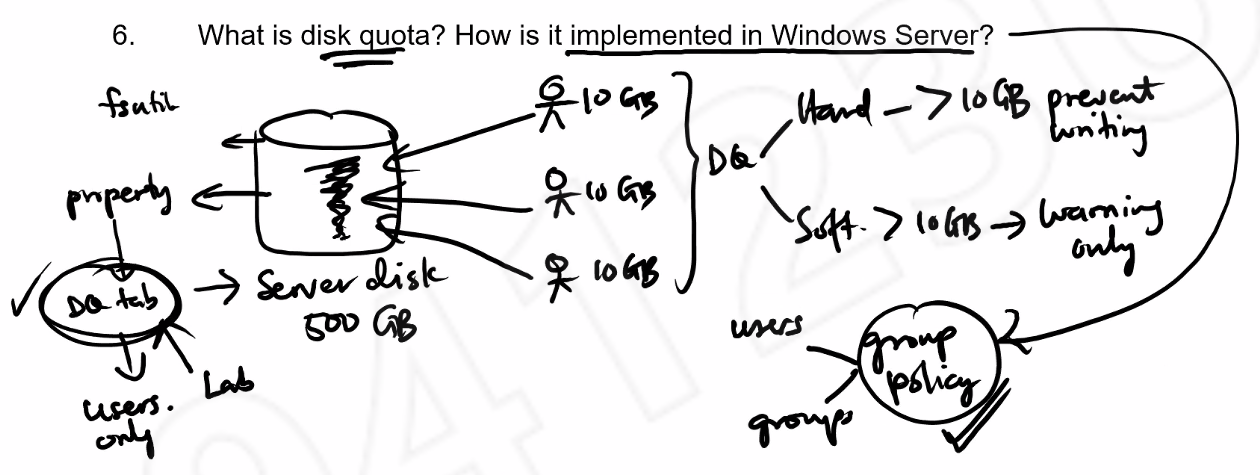 6. What is disk quota? How is it implemented in Windows Server?
fsutil
property
DQ tab
users.
only
Lab
Server disk
500 GB
10 GB
10 GB
10 GB
DQ
Hard — > 10 GB prevent
writing
Soft. > 10 GB → warning
only
users
groups
group
policy